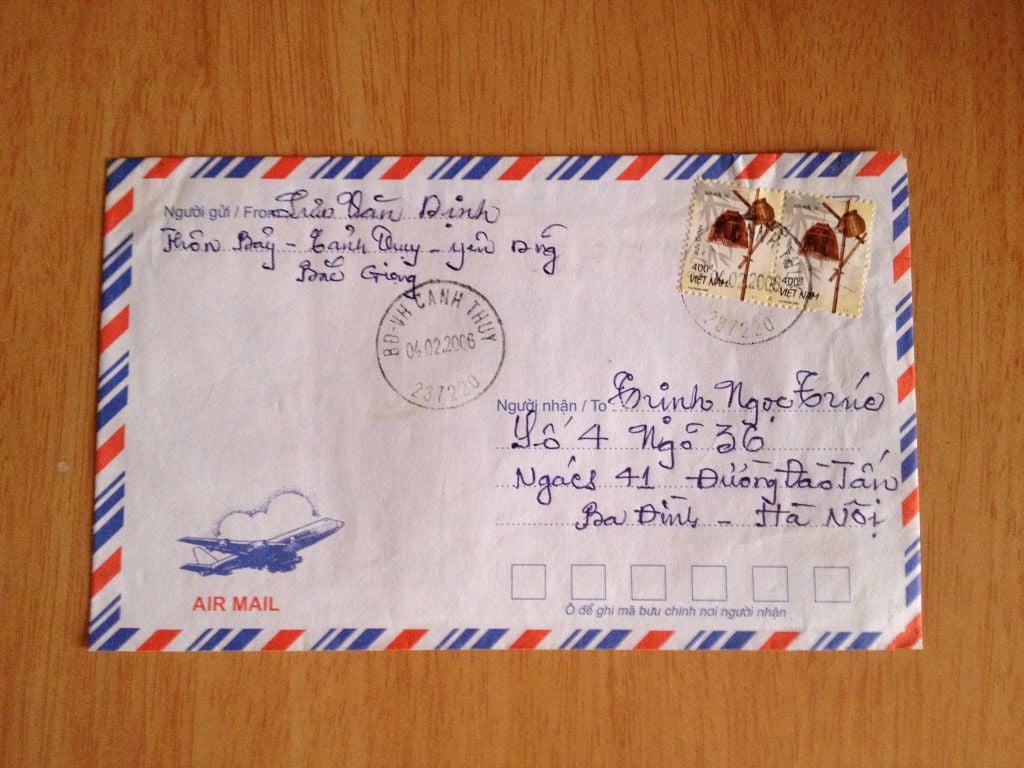 Người gửi / From Lưu Văn Định
Thôn Bảy - Cảnh Thụy - Yên Dũng
Bắc Giang
BĐ-VH CANH THUY
04.02.2006
237220
400đ
VIỆT NAM
400đ
VIỆT NAM
04.02.2006
237220
Người nhận / To Trịnh Ngọc Trúc
Số 4 Ngõ 36
Ngách 41 Đường Đào Tấn
Ba Đình - Hà Nội
AIR MAIL
Ô để ghi mã bưu chính nơi người nhận